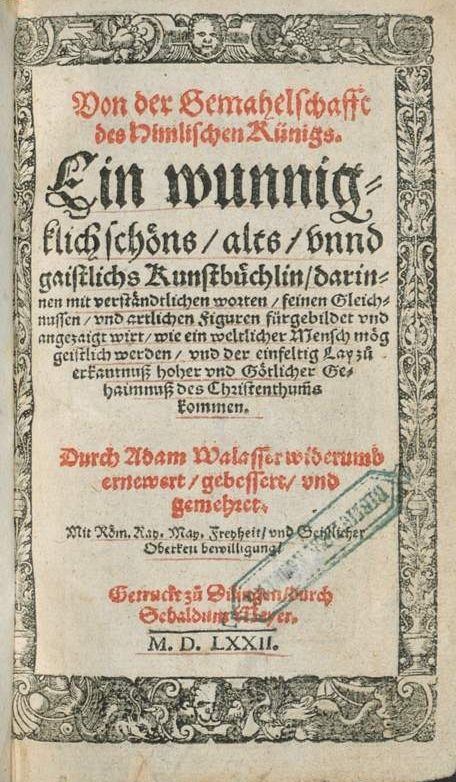 Von der Gemahelschafft
des Himlischen Künigs.
Ein wunnig⸗
klich schöns / alts / vnnd
gaistlichs Kunstbüchlin / darin⸗
nen mit verständtlichen worten / feinen Gleich⸗
nussen / vnd artlichen Figuren fürgebildet vnd
angezaigt wirt / wie ein weltlicher Mensch mög
geistlich werden / vnd der einfeltig Lay zů
erkantnuß hoher vnd Götlicher Ge⸗
haimnuß des Christenthum̃s
kommen.
Durch Adam Walasser widerumb
ernewert / gebessert / vnd
gemehret.
Mit Röm. Kay. May. Freyheit / vnd Geistlicher
Oberkeit bewilligung.
Getruckt zů Dilingen / durch
Sebaldum Meyer.
M. D. LXXII.